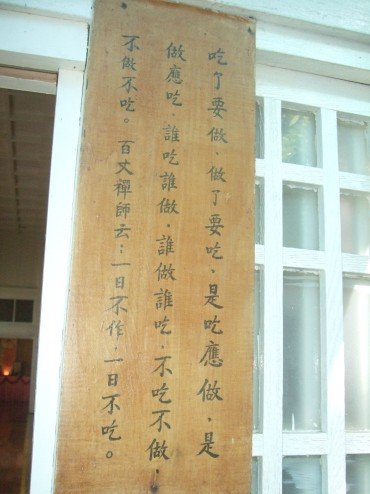 吃了要做、做了要吃、是吃應做、是
做應吃、誰吃誰做、誰做誰吃、不吃不做、
不做不吃。百丈禪師云：一日不作、一日不吃。